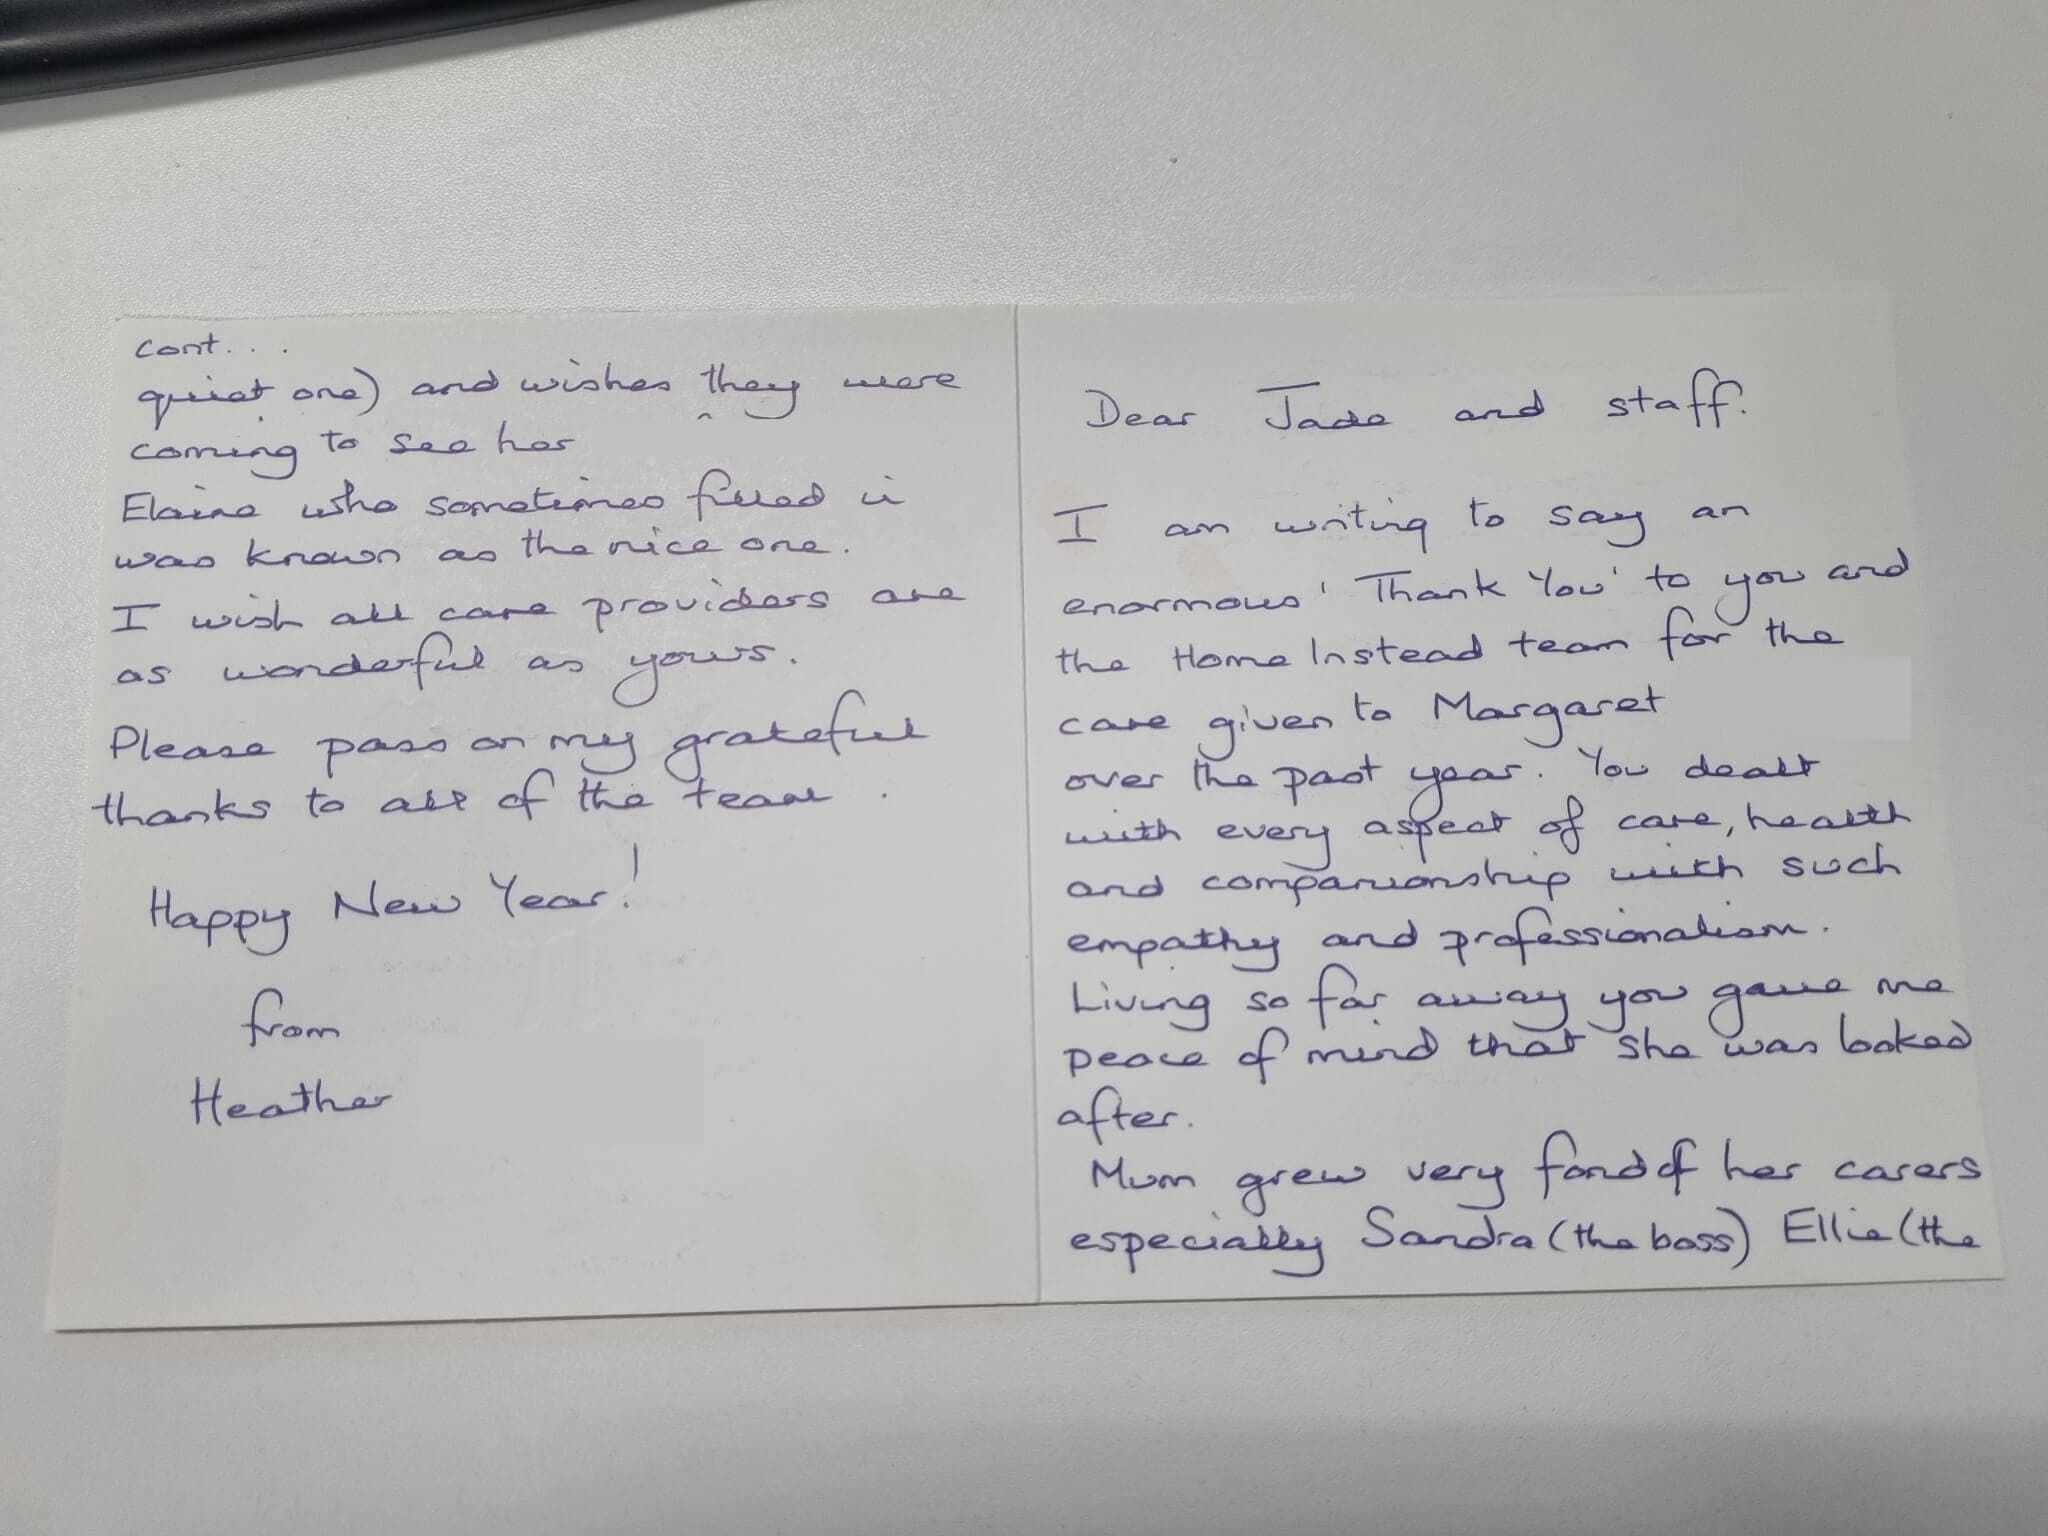 Dear Jade and staff.
I am writing to say an
enormous 'Thank You' to you and
the Home Instead team for the
care given to Margaret
over the past year. You dealt
with every aspect of care, health
and companionship with such
empathy and professionalism.
Living so far away you gave me
peace of mind that she was looked
after.
Mum grew very fond of her carers
especially Sandra (the boss) Ellie (the
cont...
quiet one) and wishes they were
coming to see her
Elaine who sometimes filled in
was known as the nice one.
I wish all care providers are
as wonderful as yours.
Please pass on my grateful
thanks to all of the team.
Happy New Year!
from
Heather